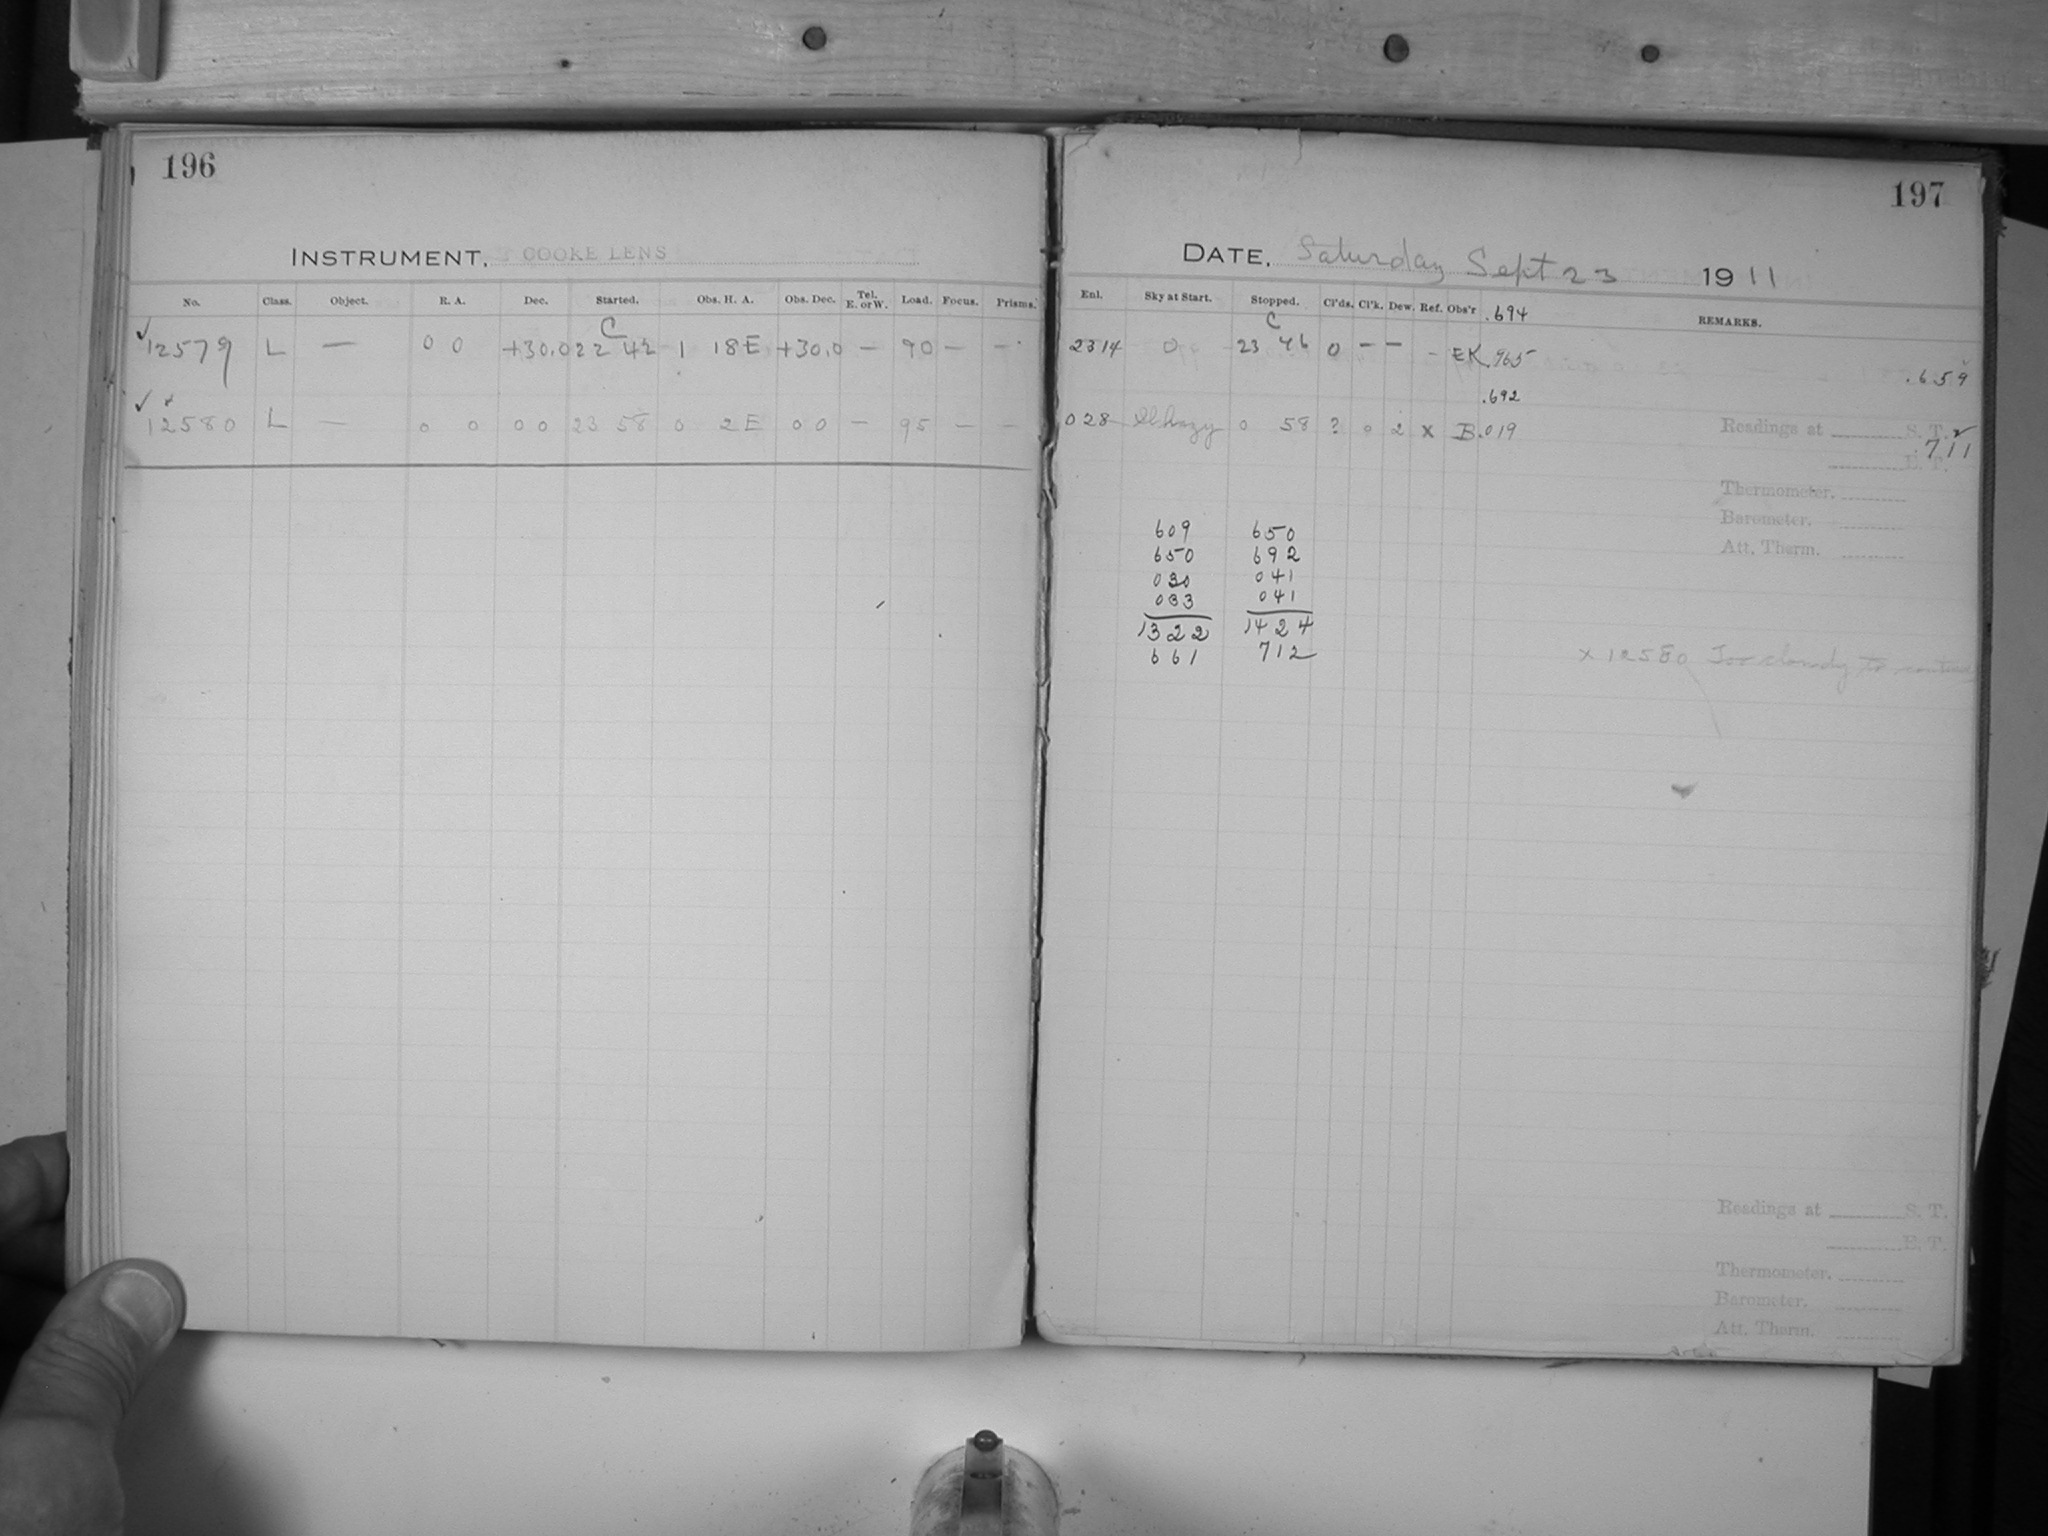 196
INSTRUMENT. COOKE LENS
No. Class. Object. R. A. Dec. Started. Obs. H. A. Obs. Dec. Tel. E. or W. Load. Focus. Prisms.
C
✓ 12579 L — 0 0 +30.0 22 42 1 18E +30.0 — 90 — —
✓ 12580 L — 0 0 0 0 23 58 0 2E 0 0 — 95 — —
197
DATE. Saturday Sept 23 1911
Enl. Sky at Start. Stopped. Cl'ds. Cl'k. Dew. Ref. Obs'r .694 REMARKS.
C
2314 23 46 0 — — - EK .965
.659
.692
028 Sl hazy 0 58 ? 0 2 x B .019
Readings at S. T.
.711
E. T.
Thermometer.
Barometer.
Att. Therm.
609 650
650 692
030 041
033 041
1322 1424
661 712
x 12580 Too cloudy to continue
Readings at S. T.
E. T.
Thermometer.
Barometer.
Att. Therm.